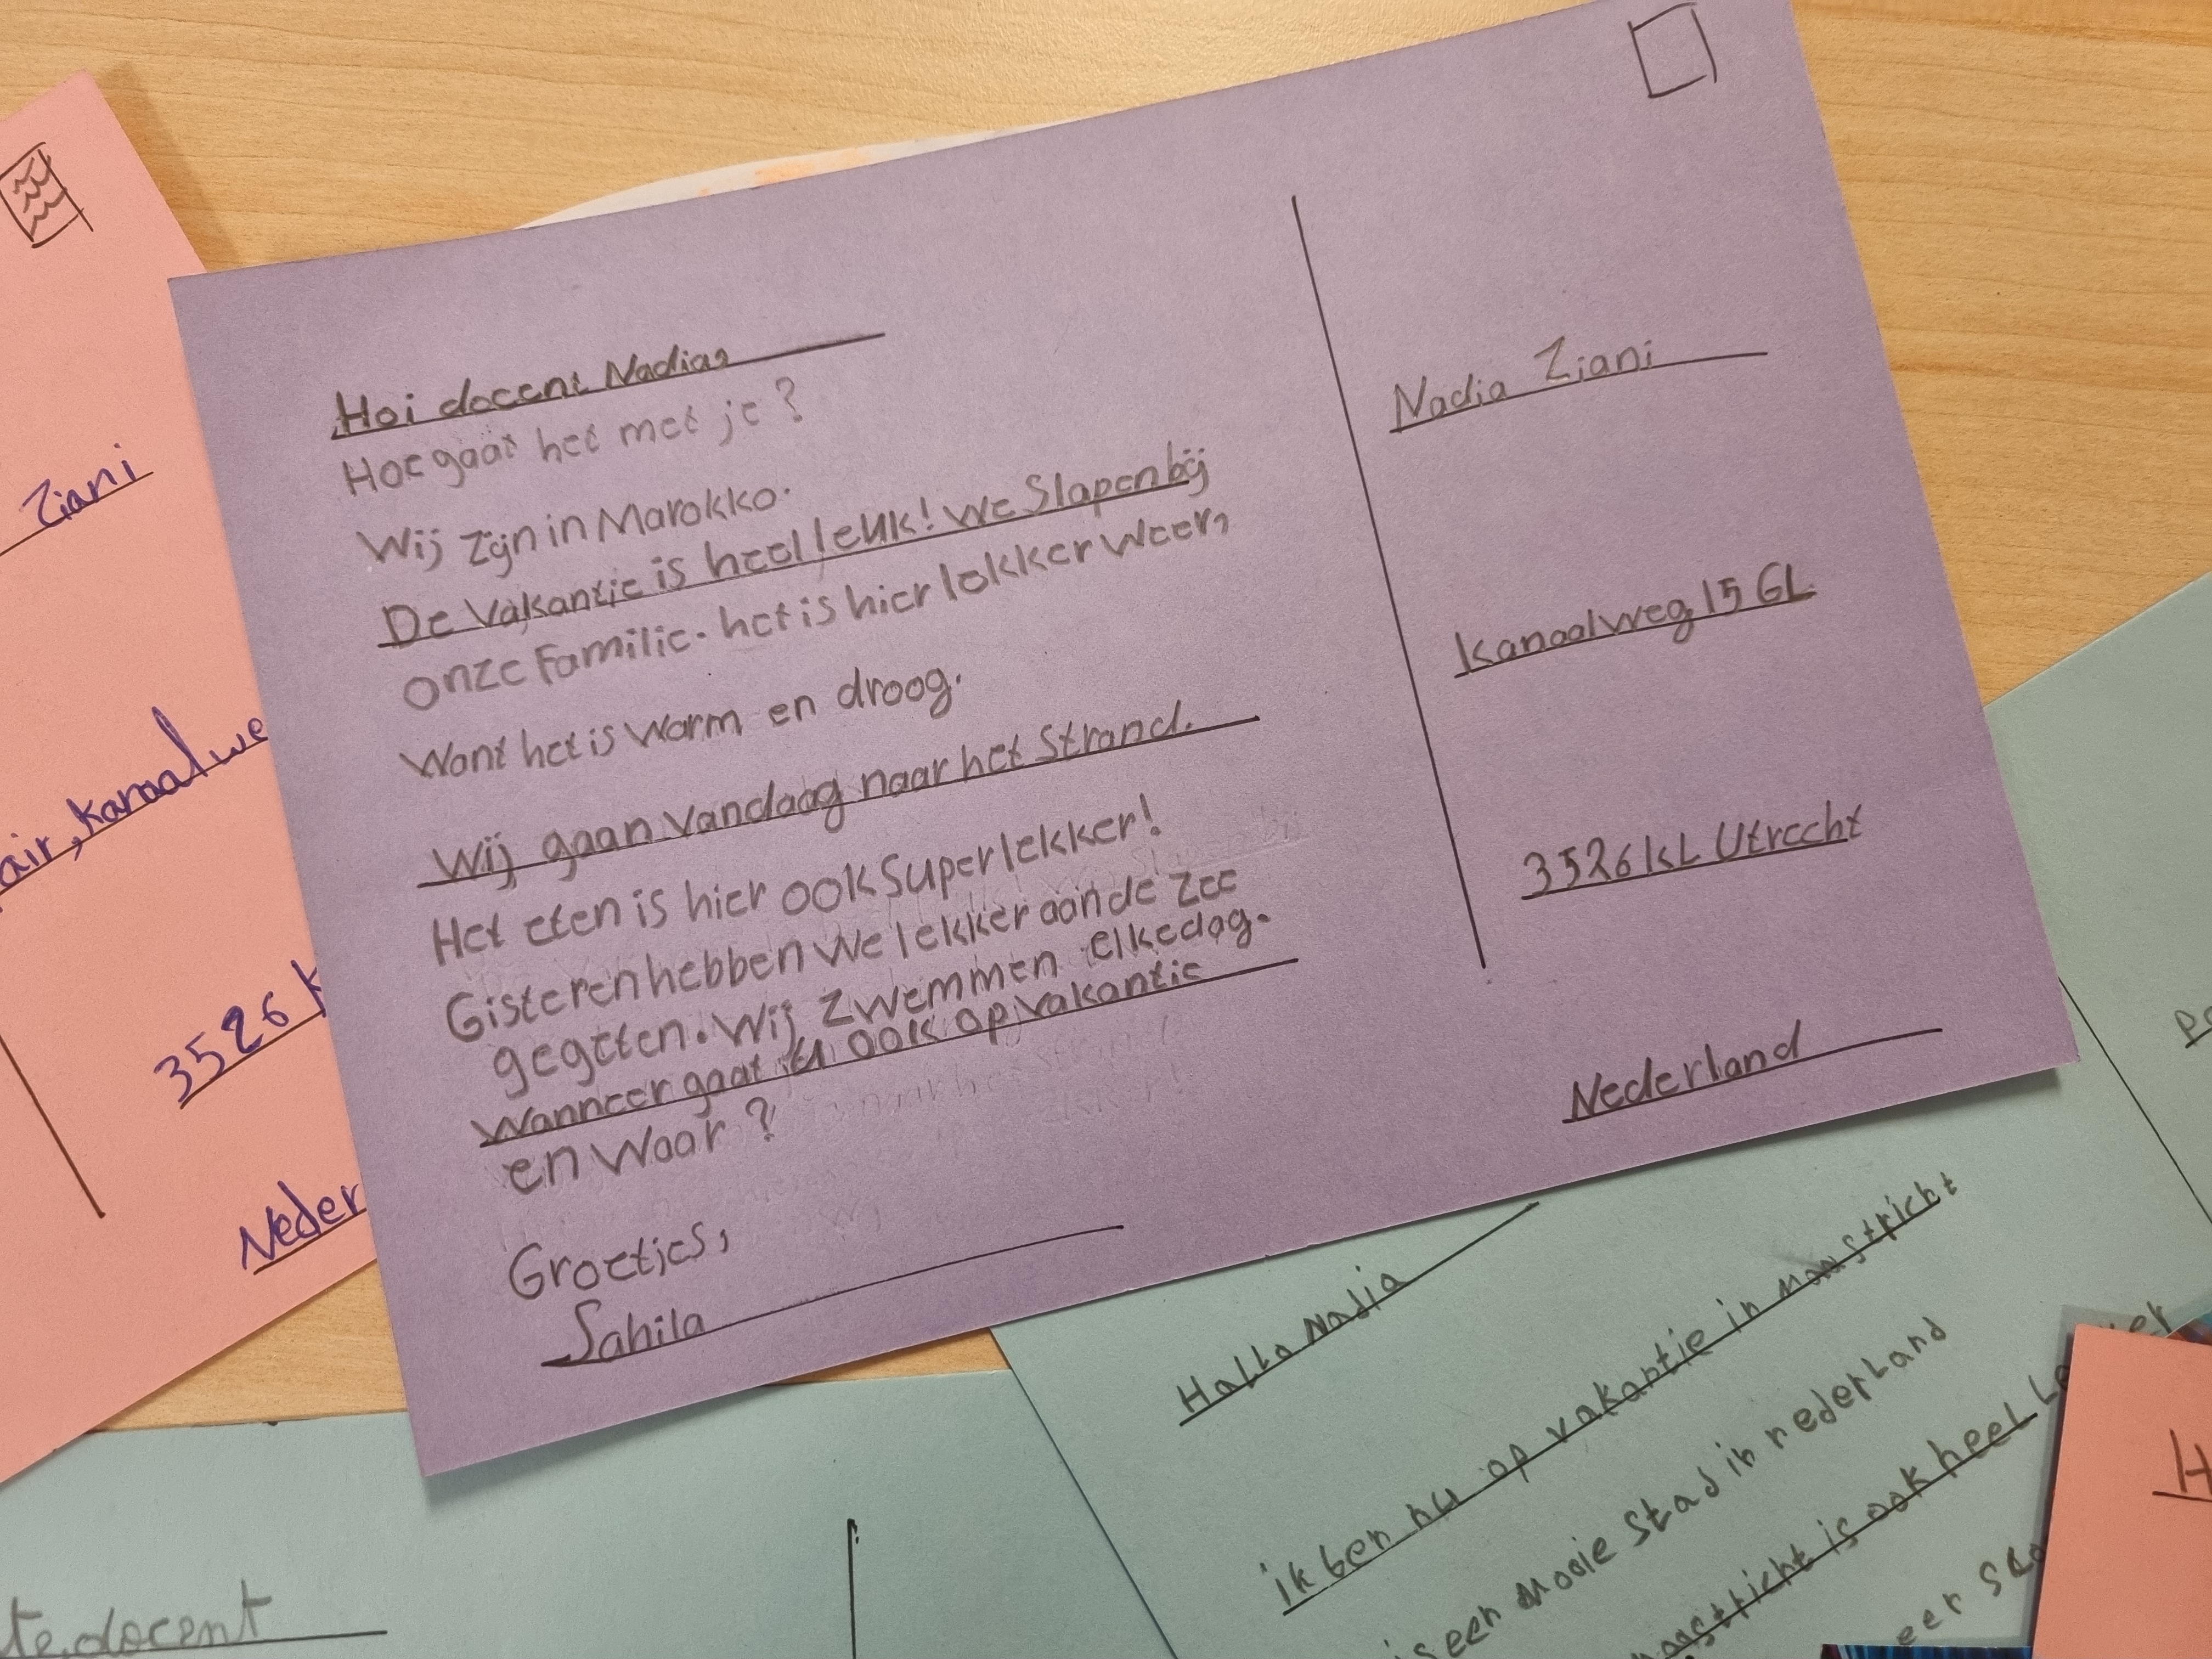 Hoi docent Nadia,
Hoe gaat het met je?
Wij zijn in Marokko.
De Vakantie is heel leuk! We Slapen bij
onze Familie. het is hier lekker weer,
Want het is Warm en droog.
Wij gaan Vandaag naar het Strand.
Het eten is hier ook Super lekker!
Gisteren hebben We lekker aan de Zee
gegeten. Wij Zwemmen elke dag.
Wanneer gaat u ook op vakantie
en Waar?
Groetjes,
Sahila
Nadia Ziani
Kanaalweg 15 GL
3526 KL Utrecht
Nederland
Ziani
air, kanaalwe
3526 K
Neder
Hallo Nadia
ik ben nu op vakantie in Maastricht
is een Mooie stad in nederland
aastricht is ook heel Le
eer
te docent
H